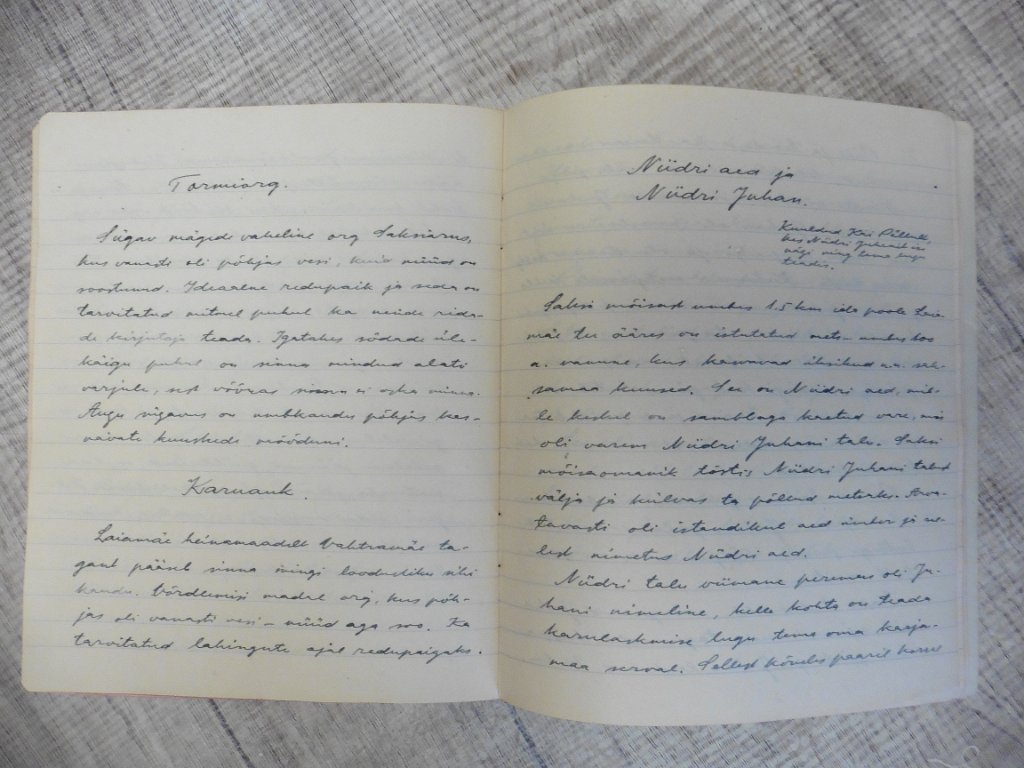 Tormiorg.
Sügav mägede vaheline org Saksiarus,
kus vanasti oli põhjas vesi, kuid nüüd on
soostunud. Ideaalne redupaik ja seda on
tarvitatud mitmel puhul ka neide rida-
de kirjutaja teada. Igatahes sõdade üle-
käigu puhul on sinna mindud alati
varjule, sest võõras sinna ei oska minna.
Augu sügavus on umbkaudu põhjas kas-
vavate kuuskede mõõduni.
Karuauk.
Laiamäe heinamaadelt Vahtramäe ta-
gant pääseb sinna mingi loodusliku sihi
kaudu. Võrdlemisi madal org, kus põh-
jas oli vanasti vesi – nüüd aga soo. Ka
tarvitatud lahingute ajal redupaigaks.
Niidri aed ja
Niidri Juhan.
Kuuldud
kes Niidri Juhanit
nägi ning tema lugu
teadis.
Saksi mõisast umbes 1.5 km ida poole
mäe tee ääres on istutatud mets – umbes 600
a. vanune, kus kasvavad üksikud n.n. sak-
samaa kuused. See on Niidri aed, mil-
le keskel on samblaga kaetud vare, mis
oli varem Niidri Juhani talu. Saksi
mõisaomanik tõstis Niidri Juhani talust
välja ja külvas ta põllud metsaks. Arva-
tavasti oli istandikul aed ümber ja se-
lest nimetus Niidri aed.
Niidri talu viimane peremees oli Ju-
hani nimeline, kelle kohta on teada
karulaskmise lugu tema oma karja-
maa serval. Sellest kõneles paaril korral